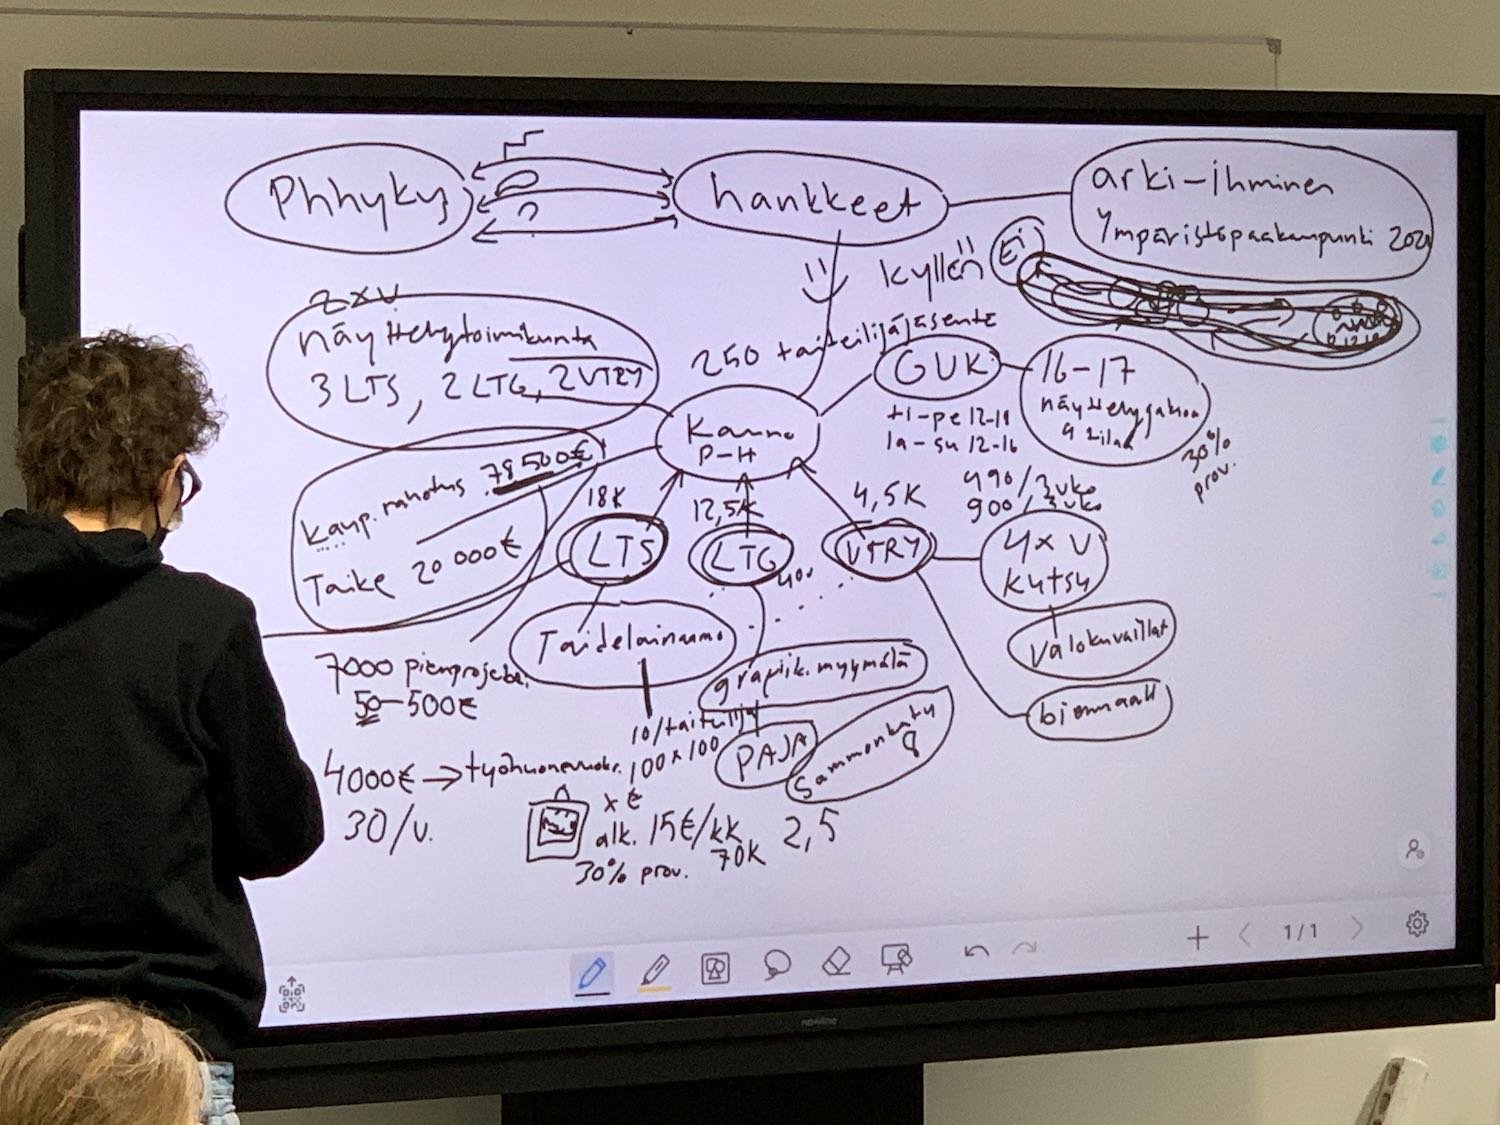 Phhyky
?
hankkeet
arki-ihminen
Ympäristöpääkaupunki 2021
kyllä
Ei
2xv
näyttelytoimikunta
3 LTS, 2 LTG, 2 VTRY
250 taiteilijajäsentä
GUK
ti-pe 12-18
la-su 12-16
16-17
näyttelyaikaa
9 tilaa
30% prov.
Kauno
P-H
Kaup. rahoitus 78500€
Taike 20 000€
18K
12,5K
4,5K
490/2vko
900/3vko
LTS
LTG
VTRY
4xV
Kutsu
Valokuvaillat
biennaali
Taidelainaamo
grafiik. myymälä
PAJA
Sammonkatu
8
7000 pienprojekti.
50-500€
10/taiteilija
100x100
4000€ → työhuonevuokr.
30/v.
x €
alk. 15€/kk
70K
2,5
30% prov.
1/1